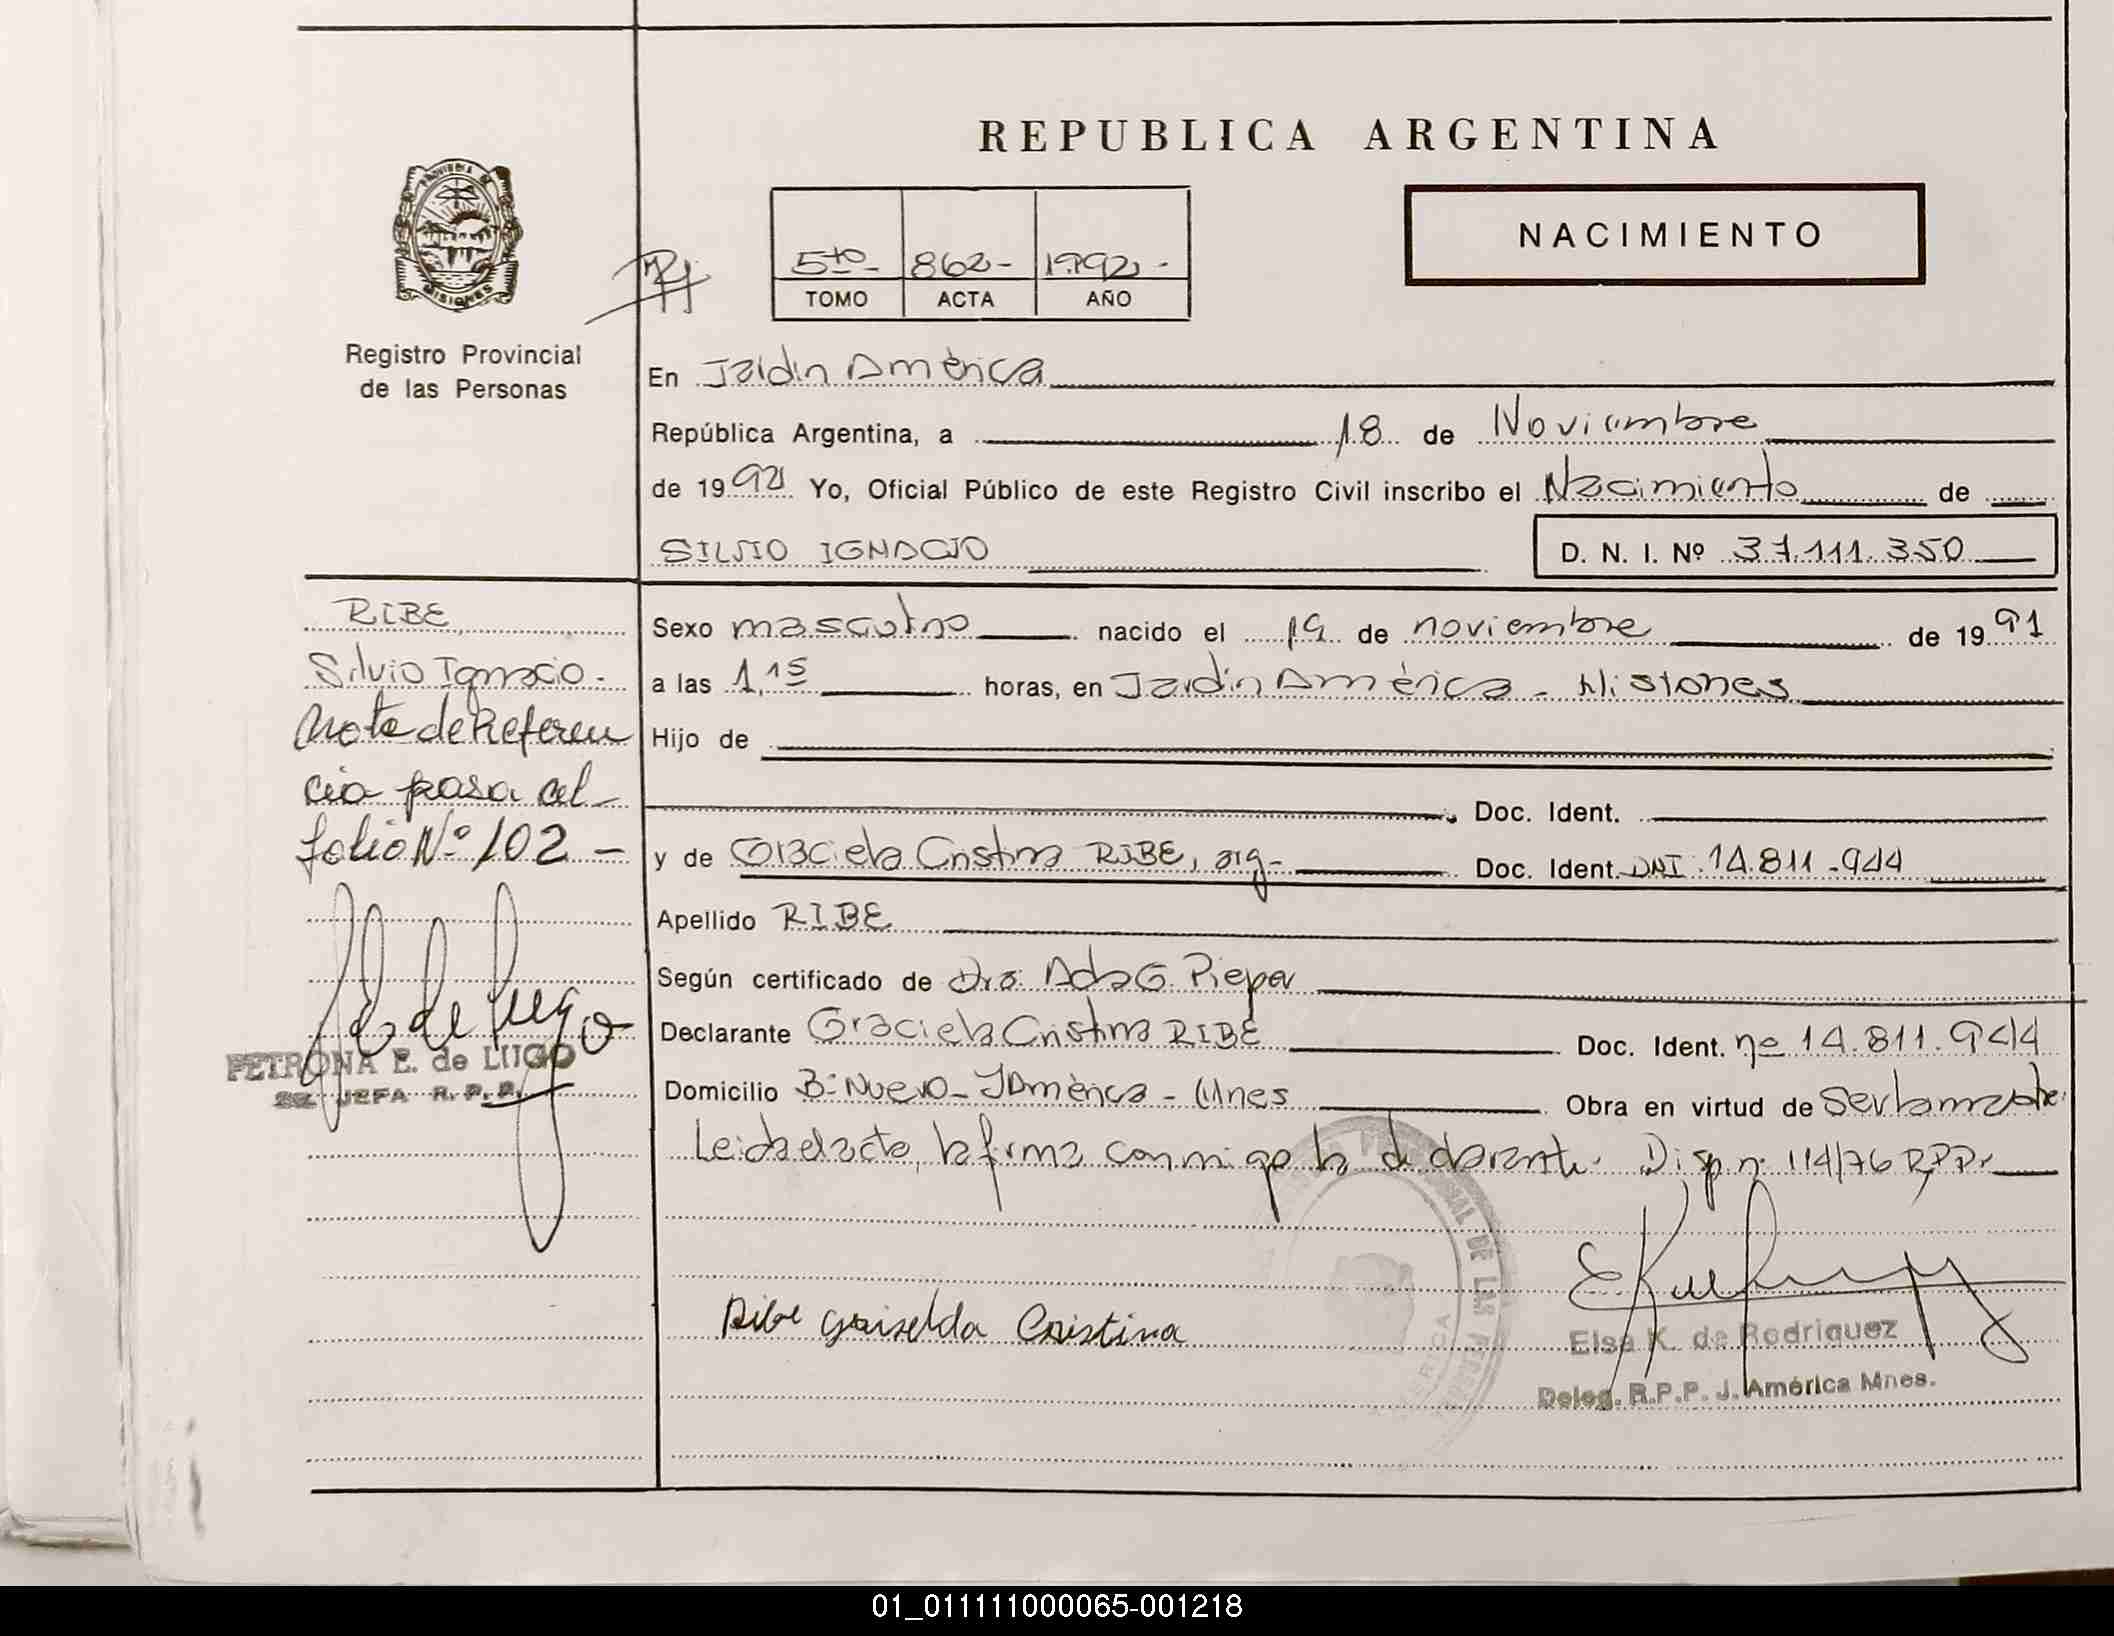 REPUBLICA ARGENTINA
NACIMIENTO
5to 862- 1992-
TOMO ACTA AÑO
PROVINCIA DE MISIONES
Registro Provincial
de las Personas
En Jardin América
República Argentina, a 18 de Noviembre
de 1992 Yo, Oficial Público de este Registro Civil inscribo el Nacimiento de
SILVIO IGNACIO D. N. I. Nº 37.111.350
RIBE
Silvio Ignacio.
Nota de Referen
cia pasa al
folio Nº 102 -
PETRONA E. de LUGO
JEFA R. P. P.
Sexo masculino nacido el 19 de noviembre de 1991
a las 1,15 horas, en Jardin América - Misiones
Hijo de
Doc. Ident.
y de Graciela Cristina RIBE, arg- Doc. Ident. DNI 14.811.944
Apellido RIBE
Según certificado de Dra. Ada G. Pieper
Declarante Graciela Cristina RIBE Doc. Ident. nº 14.811.944
Domicilio Bº Nuevo - J América - Mnes Obra en virtud de Ser la madre.
Leida el acta, la firma conmigo la declarante. Disp. nº 114/76 RPP.
Ribe Griselda Cristina
Elsa K. de Rodriguez
Deleg. R.P.P. J. América Mnes.
01_011111000065-001218